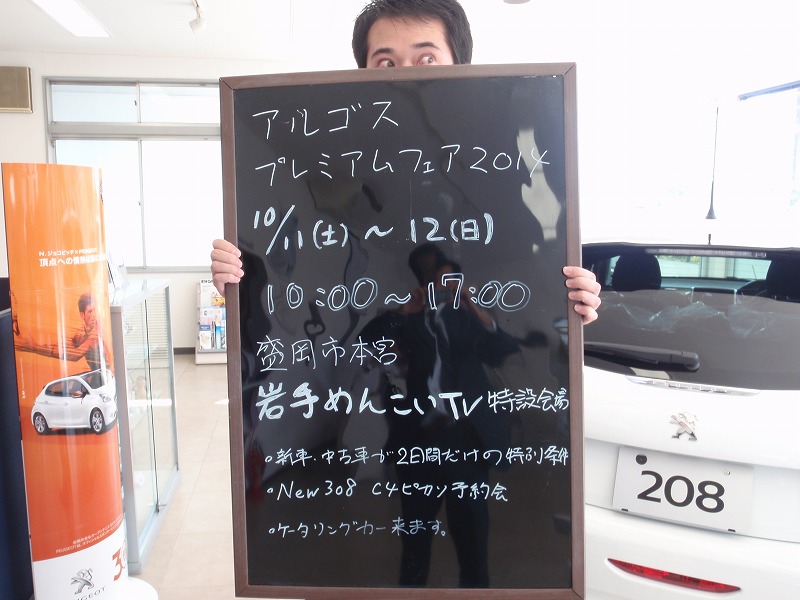 アルゴス
プレミアムフェア2014
10/11(土)～12(日)
10:00～17:00
盛岡市本宮
岩手めんこいTV 特設会場
・新車、中古車が2日間だけの特別条件
・New308 C4ピカソ予約会
・ケータリングカー来ます。
N.ジョコビッチ×PEUGEOT
208